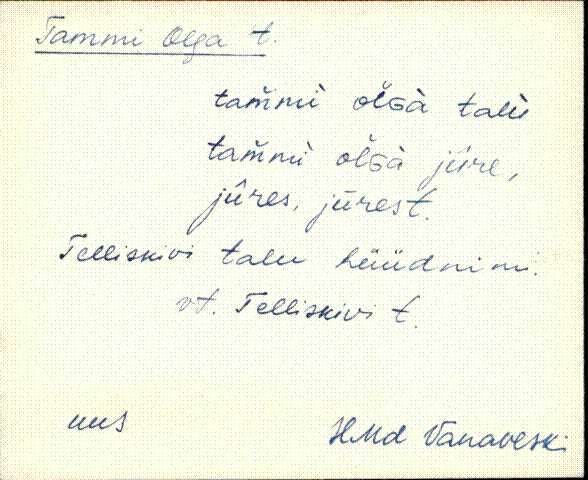 Tammi Olga t.
tam̆mì olGà talù
tam̆mì olGà jûre,
jûres, jûrest.
Telliskivi talu hüüdnimi.
vt. Telliskivi t.
uus
HMd Vanaveski